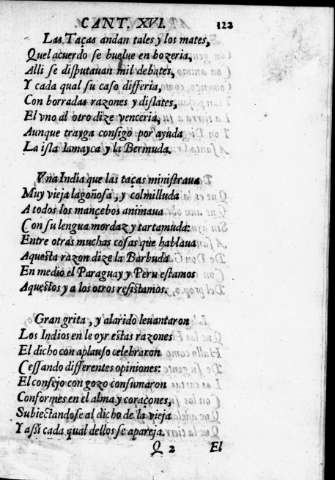 CANT. XVI. 122
Las Taças andan tales y los mates,
Que l acuerdo se buelue en bozeria,
Alli se disputauan mil debates,
Y cada qual su caso differia,
Con borradas razones y dislates,
El vno al otro dize venceria,
Aunque trayga consigo por ayuda
La isla Iamayca y la Bermuda.
Vna India que las taças ministraua
Muy vieja lagañosa, y colmilluda
A todos los mançebos animaua
Con su lengua mordaz y tartamuda:
Entre otras muchas cosas que hablaua
Aquesta razon dize la Barbuda
En medio el Paraguay y Peru estamos
Aquestos y a los otros resistamos.
Gran grita, y alarido leuantaron
Los Indios en le oyr estas razones
El dicho con aplauso celebraron
Cessando differentes opiniones:
El consejo con gozo consumaron
Conformes en el alma y coraçones,
Subiectandose al dicho de la vieja
Y assi cada qual dellos se apareja.
Q 2 El